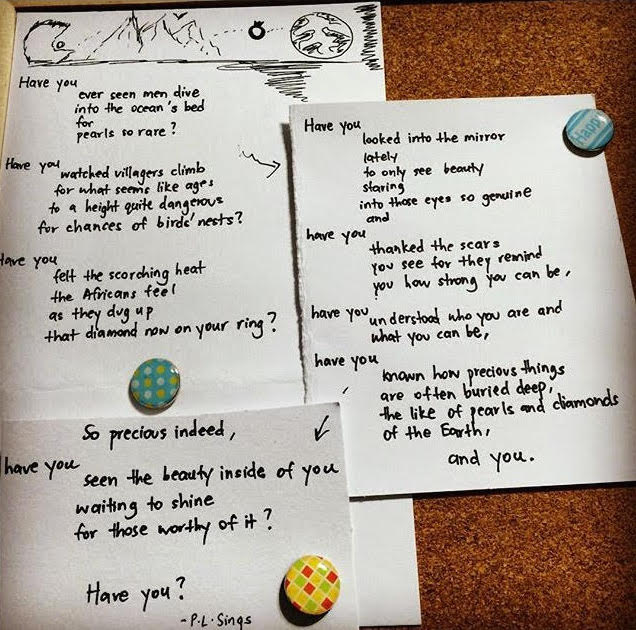 Have you
ever seen men dive
into the ocean's bed
for
pearls so rare?
Have you
watched villagers climb
for what seems like ages
to a height quite dangerous
for chances of birds' nests?
Have you
felt the scorching heat
the Africans feel
as they dug up
that diamond now on your ring?
Have you
looked into the mirror
lately
to only see beauty
staring
into those eyes so genuine
and
have you
thanked the scars
you see for they remind
you how strong you can be,
have you
understood who you are and
what you can be,
have you
known how precious things
are often buried deep,
the like of pearls and diamonds
of the Earth,
and you.
So precious indeed,
have you
seen the beauty inside of you
waiting to shine
for those worthy of it?
Have you?
-P.L.Sings
Happy